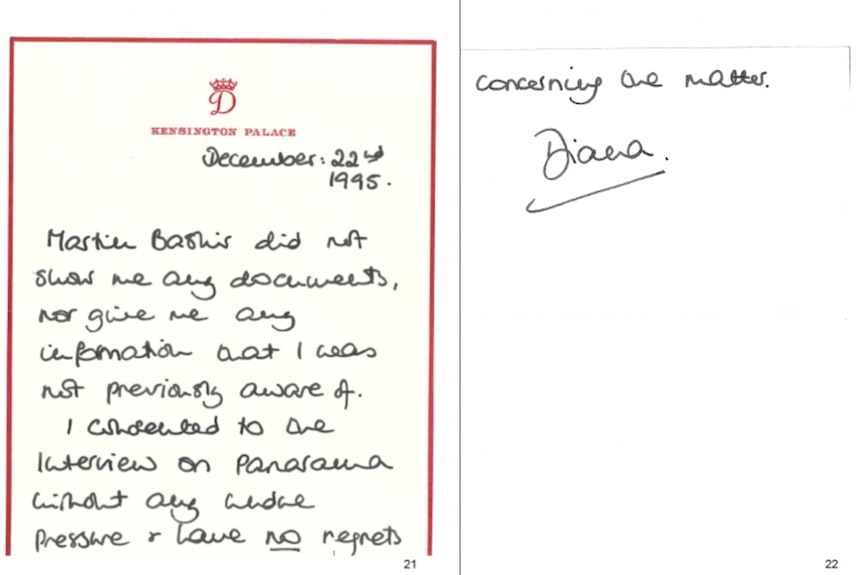 D
KENSINGTON PALACE
December: 22nd
1995.
Martin Bashir did not
show me any documents,
nor give me any
information that I was
not previously aware of.
I consented to the
Interview on Panorama
without any undue
pressure & have no regrets
21
concerning the matter.
Diana.
22